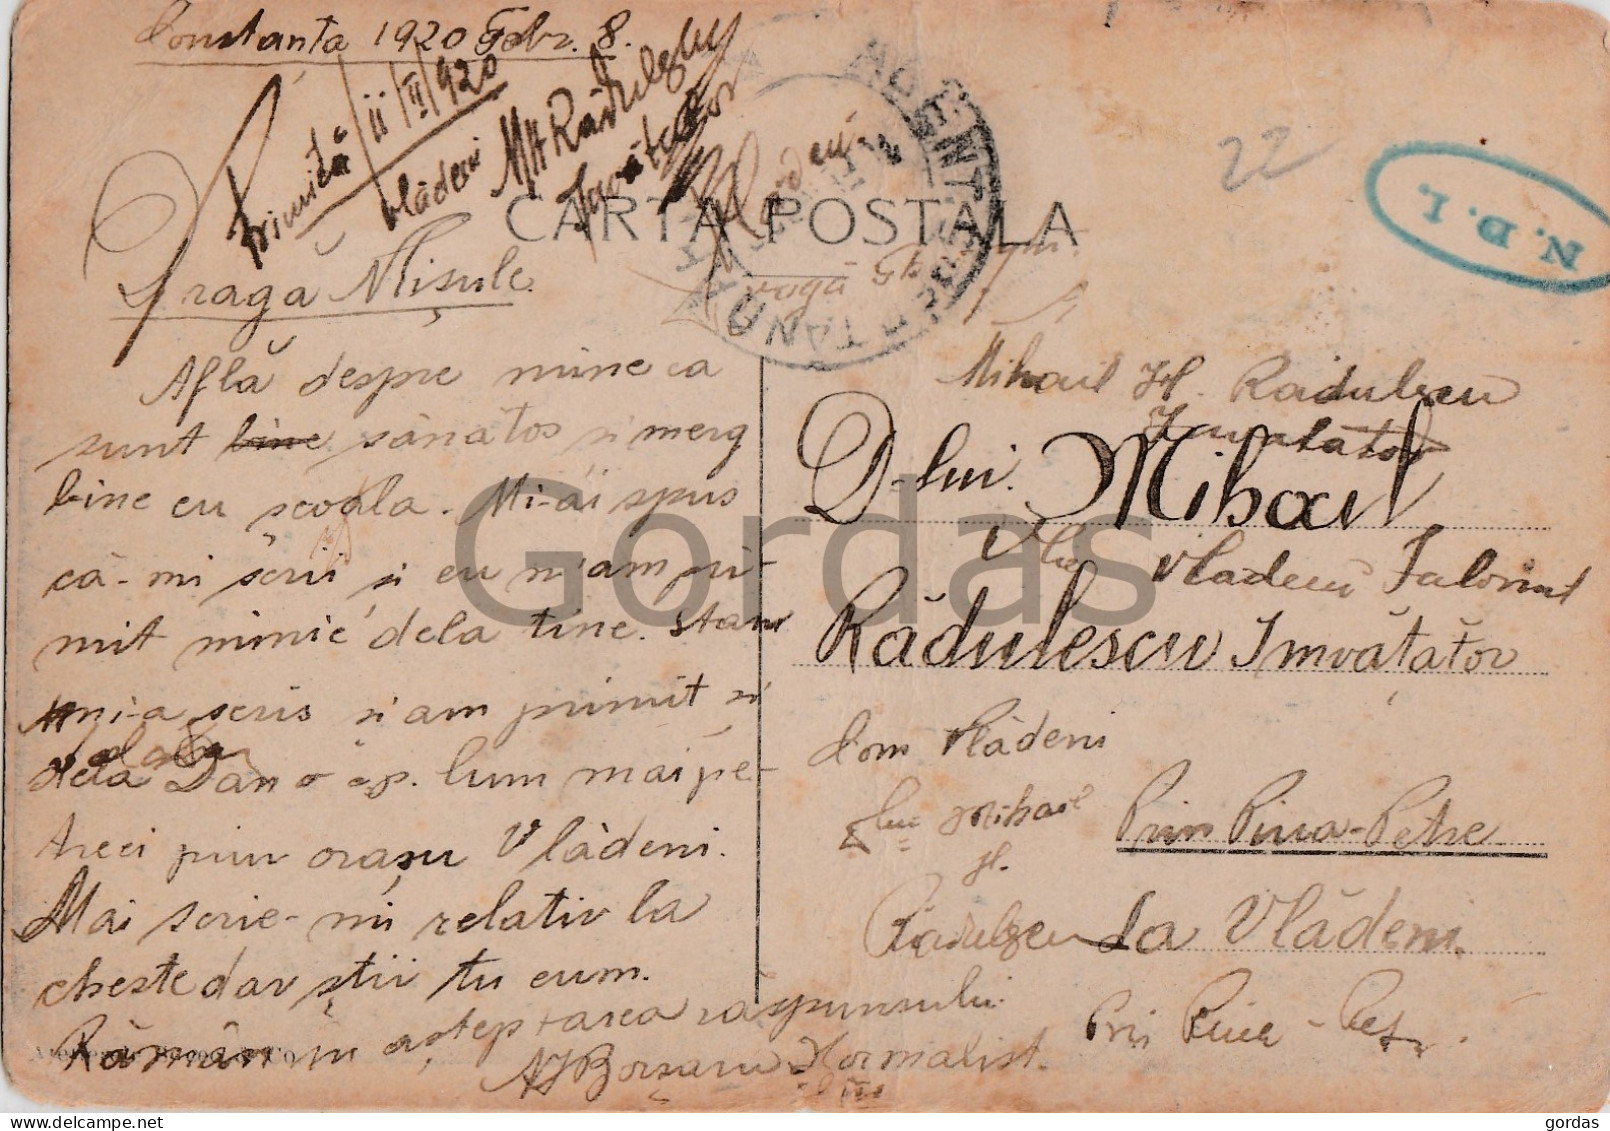 Constanța 1920 Febr. 8.
Primită 11/II/920
Vlădeni MH Rădulescu
Învățător
CARTA POSTALA
N. D. I.
22
Dragă Mișule.
Află despre mine ca
sunt bine sănătos si merg
bine cu școala. Mi-ai spus
că-mi scrii si eu n'am pri-
mit nimic dela tine. Stan
mi-a scris si am primit si
dela Dan o cp. lum mai pe-
treci prin orașu Vlădeni.
Mai scrie-mi relativ la
cheste dar știi tu cum.
Rămân in așteptarea răspunsului.
Borșaru Normalist.
Mihail H. Radulescu
Invatator
D-lui. Mihail
Vladeni Ialomit
Rădulescu Învățător
Com Vlădeni
Dlui Mihail
H.
Prin Piua-Petre
Radulescu La Vlădeni.
Prin Piua - Petr.
Gordas
gordas